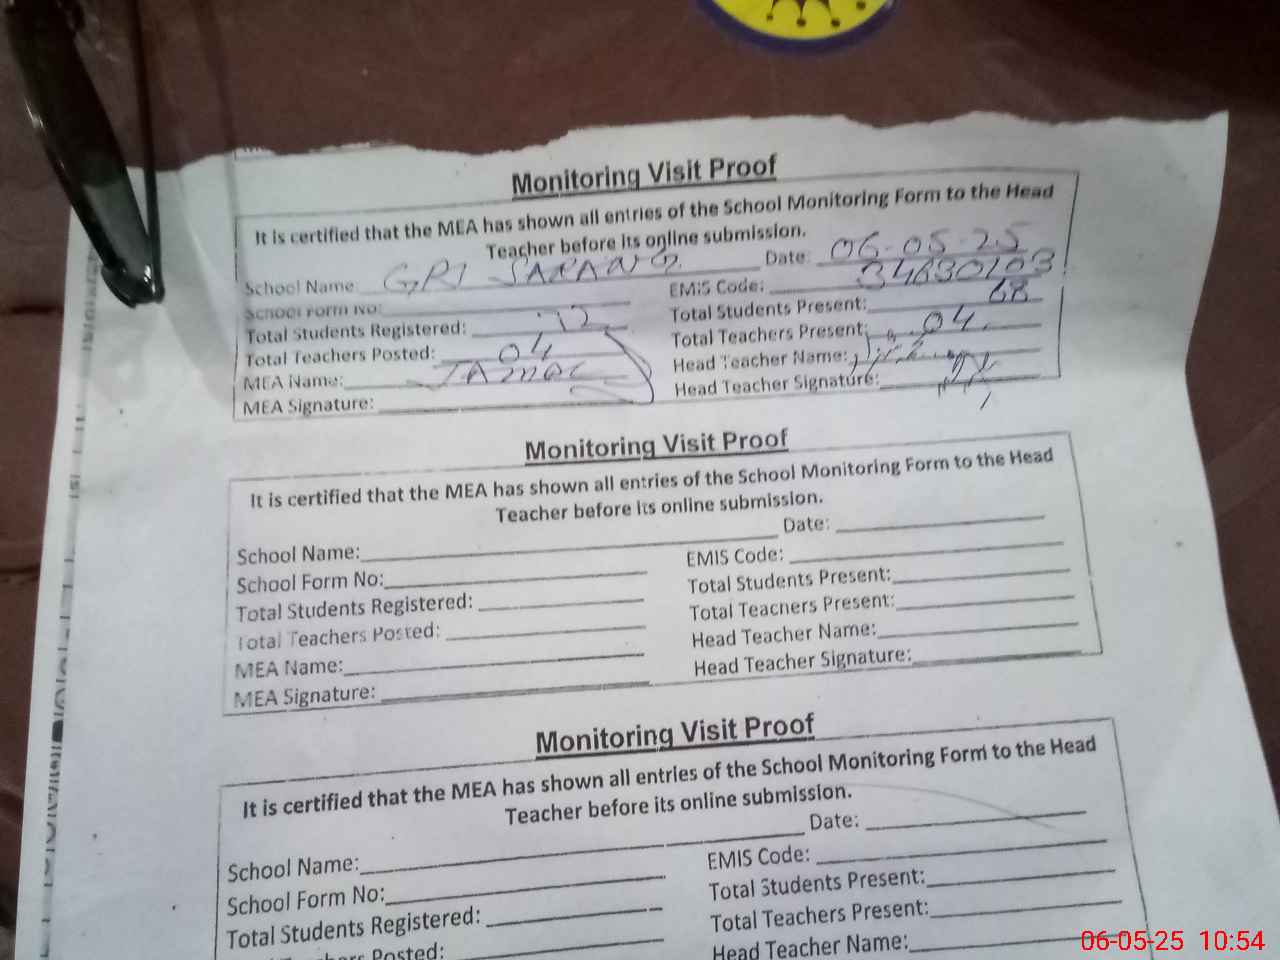 Monitoring Visit Proof
It is certified that the MEA has shown all entries of the School Monitoring Form to the Head
Teacher before its online submission.
School Name GPS SARANG Date: 06-05-25
School Form No: EMIS Code: 34630103
Total Students Registered: Total Students Present: 68
Total Teachers Posted: 04 Total Teachers Present: 04
MEA Name: Head Teacher Name:
MEA Signature: Head Teacher Signature:
Monitoring Visit Proof
It is certified that the MEA has shown all entries of the School Monitoring Form to the Head
Teacher before its online submission.
School Name: Date:
School Form No: EMIS Code:
Total Students Registered: Total Students Present:
Total Teachers Posted: Total Teachers Present:
MEA Name: Head Teacher Name:
MEA Signature: Head Teacher Signature:
Monitoring Visit Proof
It is certified that the MEA has shown all entries of the School Monitoring Form to the Head
Teacher before its online submission.
School Name: Date:
School Form No: EMIS Code:
Total Students Registered: Total Students Present:
Posted: Total Teachers Present:
Head Teacher Name:
06-05-25 10:54